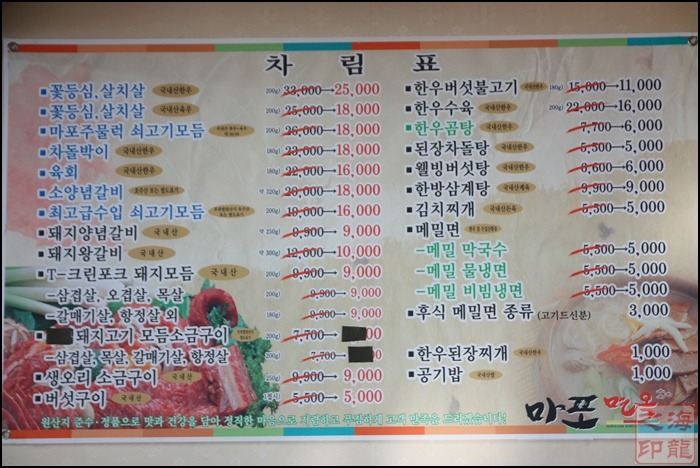 차 림 표
■꽃등심,살치살 국내산한우 200g) 33,000→25,000
■꽃등심,살치살 국내산육우 200g) 25,000→18,000
■마포주물럭 쇠고기모듬 200g) 26,000→18,000
■차돌박이 국내산한우 200g) 23,000→18,000
■육회 국내산한우 180g) 22,000→16,000
■소양념갈비 호주산 또는 별도표기 약 320g) 28,000→18,000
■최고급수입 쇠고기모듬 200g) 19,000→16,000
■돼지양념갈비 국내산 약 250g) 9,900→9,000
■돼지왕갈비 국내산 약 300g) 12,000→10,000
■T-크린포크 돼지모듬 국내산 200g) 9,900→9,000
-삼겹살, 오겹살, 목살 200g) 9,900→9,000
-갈매기살, 항정살 외 180g) 9,900→9,000
■ 돼지고기 모듬소금구이 200g) 7,700→ 00
-삼겹살,목살,갈매기살,항정살 200g) 7,700→
■생오리 소금구이 국내산 200g) 9,900→9,000
■버섯구이 국내산 1접시) 5,500→5,000
■한우버섯불고기 국내산한우 180g) 15,000→11,000
■한우수육 국내산한우 200g) 22,000→16,000
■한우곰탕 국내산한우 7,700→6,000
■된장차돌탕 국내산한우 5,500→5,000
■웰빙버섯탕 국내산한우 8,600→6,000
■한방삼계탕 국내산계육 9,900→9,000
■김치찌개 국내산돈육 5,500→5,000
■메밀면
-메밀 막국수 5,500→5,000
-메밀 물냉면 5,500→5,000
-메밀 비빔냉면 5,500→5,000
■후식 메밀면 종류 (고기드신분) 3,000
■한우된장찌개 국내산한우 1,000
■공기밥 국내산쌀 1,000
원산지 준수·정품으로 맛과 건강을 담아 정직한 마음으로 저렴하고 푸짐하게 고객 만족을 드리겠습니다!
마포면옥
海龍之印